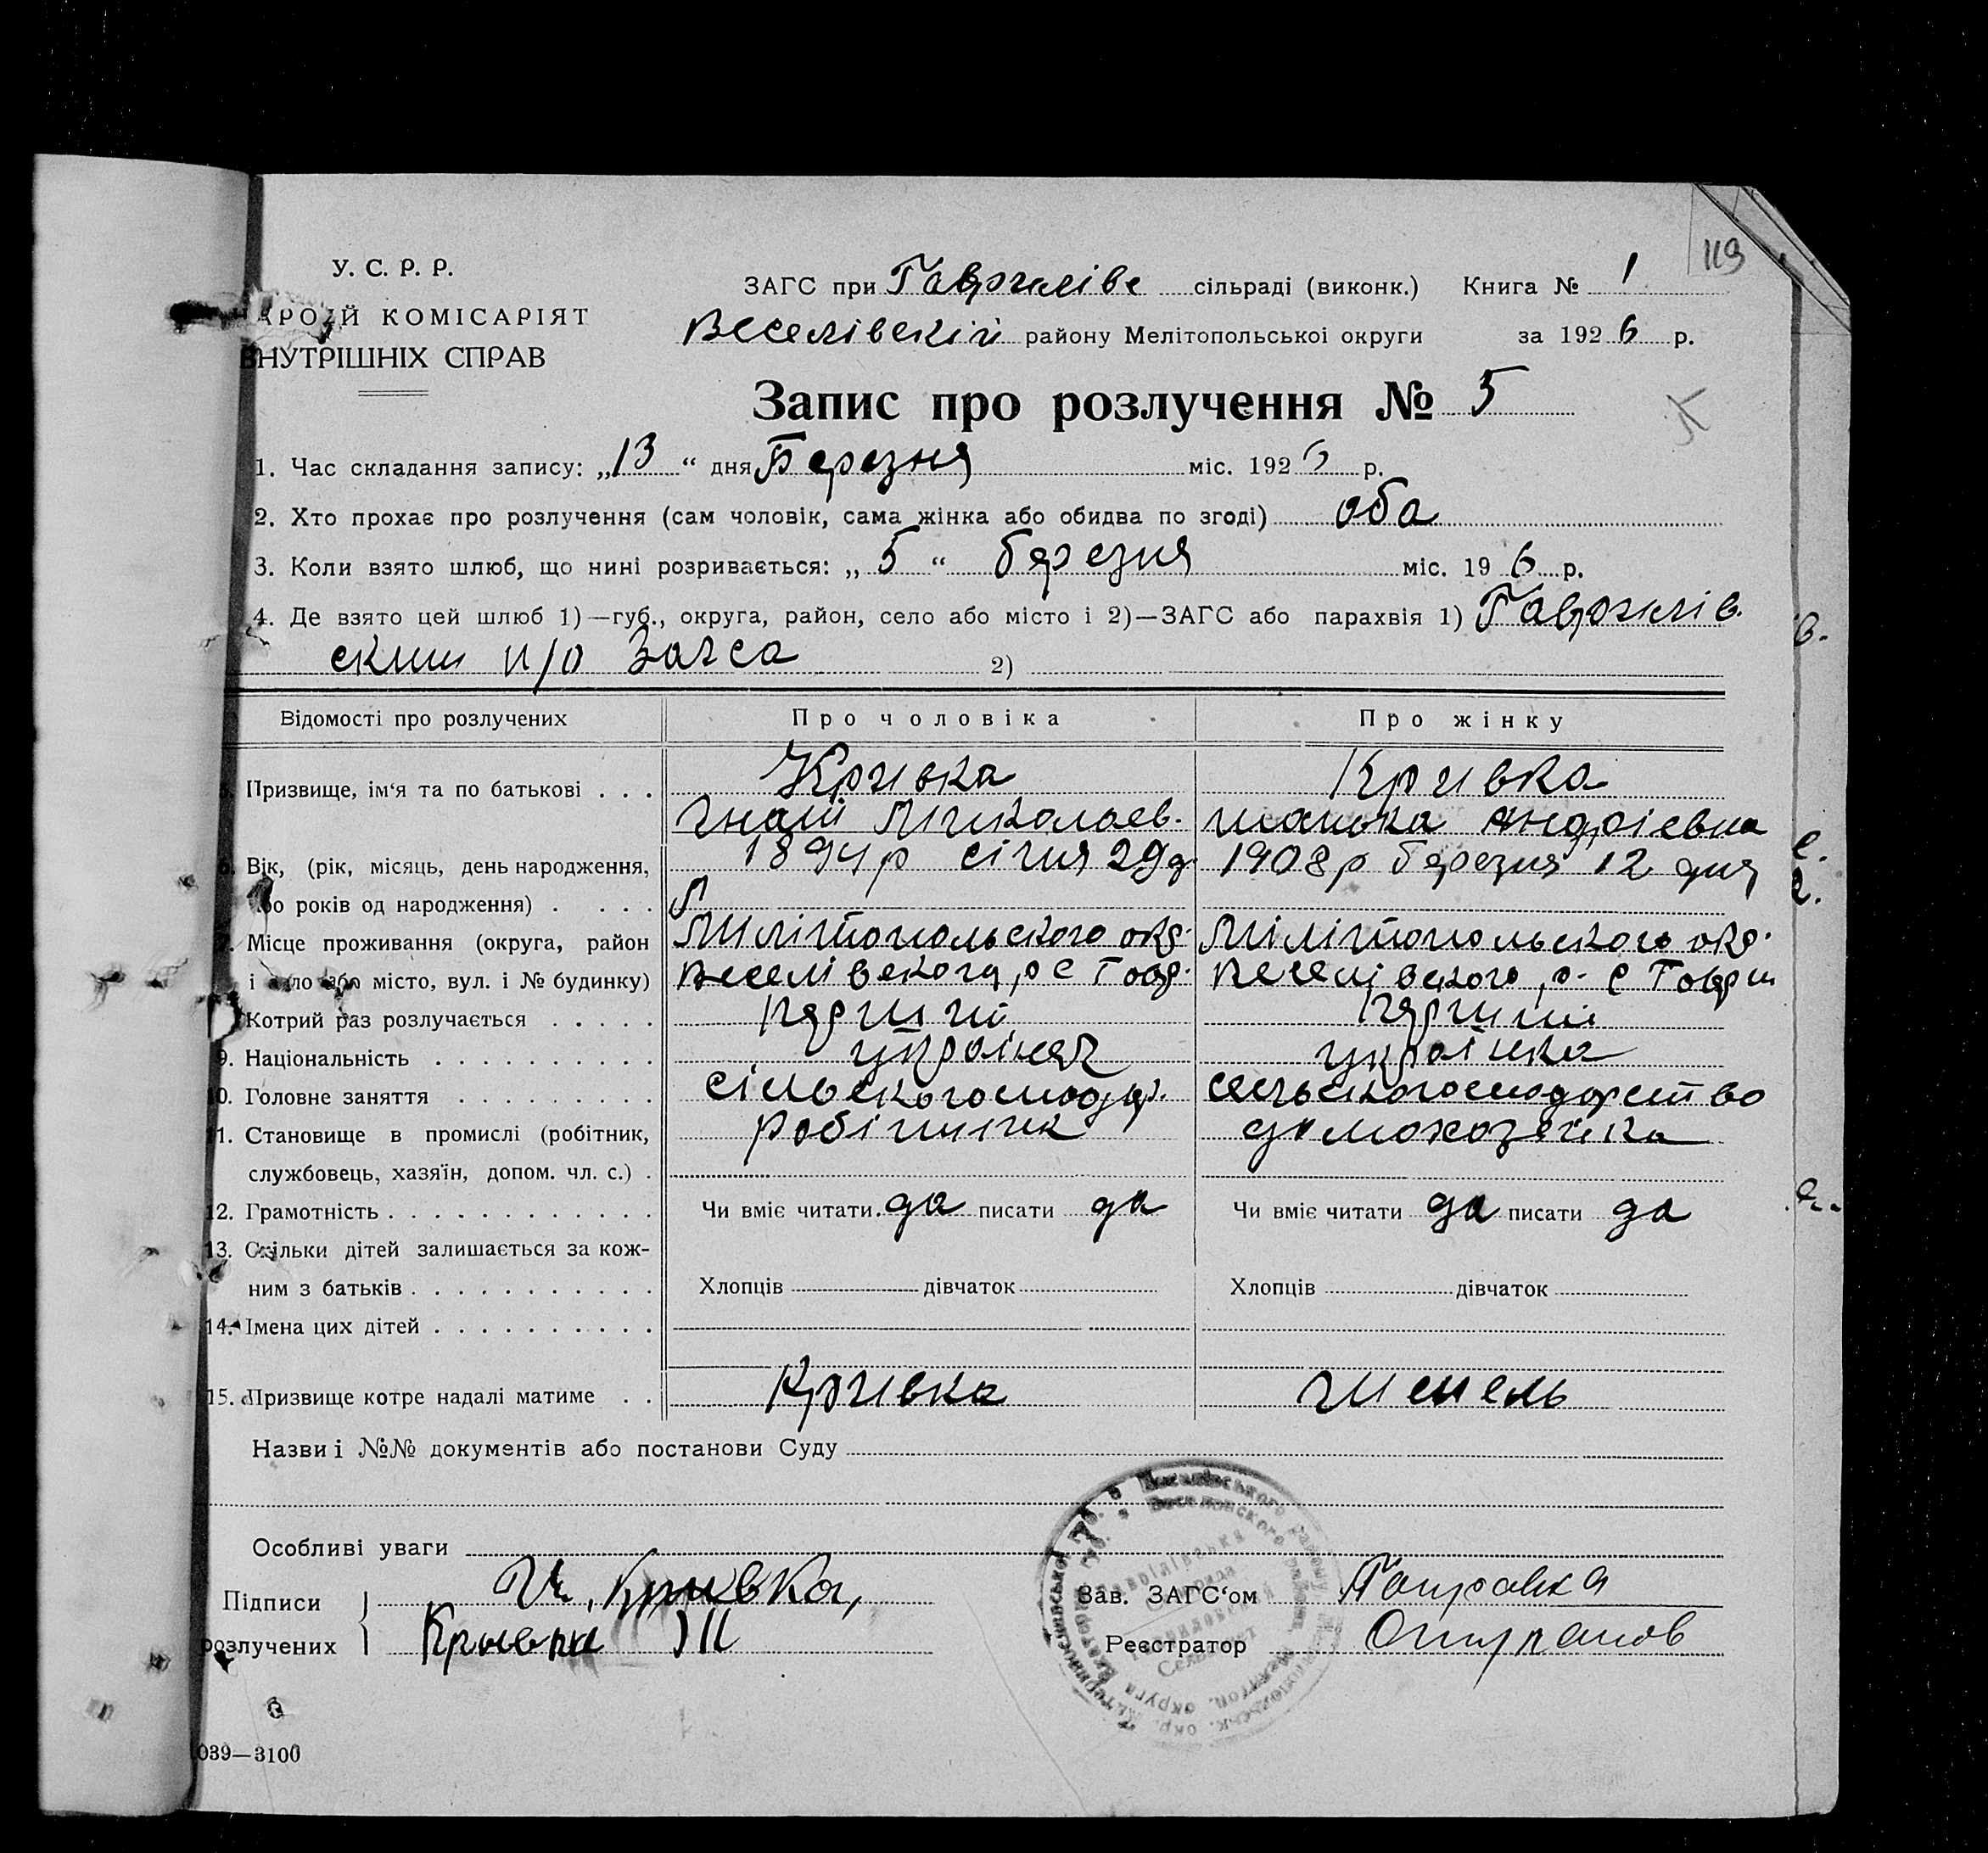 119
У. С. Р. Р.
НАРОД Й КОМІСАРІЯТ
ВНУТРІШНІХ СПРАВ
ЗАГС при Гаврилівс сільраді (виконк.) Книга № 1
Веселівскій району Мелітопольської округи за 1926 р.
Запис про розлучення № 5
1. Час складання запису: „13“ дня Березня міс. 1926 р.
2. Хто прохає про розлучення (сам чоловік, сама жінка або обидва по згоді) оба
3. Коли взято шлюб, що нині розривається: „5“ березня міс. 19 6 р.
4. Де взято цей шлюб 1)—губ., округа, район, село або місто і 2)—ЗАГС або парахвія 1) Гаврилів
ским п/о Загса 2)
Відомості про розлучених Про чоловіка Про жінку
5. Призвище, ім'я та по батькові . . . Кривка Кривка
Гнат Миколаев. Андріевна
6. Вік, (рік, місяць, день народження, 1894 р січня 29 д. 1908 р березня 12 дня
або років од народження) . . . . .
7. Місце проживання (округа, район Милітопольского окр. Мілітопольского окр.
і село або місто, вул. і № будинку) Веселівского, р с Гавр. Веселівского, р. с Гаври
Котрий раз розлучається . . . . . перший перший
9. Національність . . . . . . . . . . українец українка
10. Головне заняття . . . . . . . . . сільскогосподар. сельскогосподарство
11. Становище в промислі (робітник, робітник домохозяйка
службовець, хазяїн, допом. чл. с.) .
12. Грамотність . . . . . . . . . . . . Чи вміє читати да писати да Чи вміє читати да писати да
13. Скільки дітей залишається за кож-
ним з батьків . . . . . . . . . . . Хлопців дівчаток Хлопців дівчаток
14. Імена цих дітей . . . . . . . . . .
15. Призвище котре надалі матиме . . Кривка
Назви і №№ документів або постанови Суду
Особливі уваги
Підписи И. Кривка, Зав. ЗАГС'ом
розлучених Реєстратор
039—3100